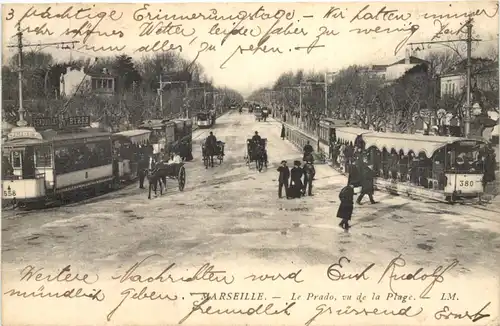 3 prächtige Erinnerungstage. - Wir hatten immer
sehr schönes Wetter, leider aber zu wenig Zeit um
alles zu sehen
BYRRH
558
380
Weitere Nachricht wird Euch Rudolf
MARSEILLE. - Le Prado, vu de la Plage. LM.
mündlich von da geben. Freundlich grüssend Ernst